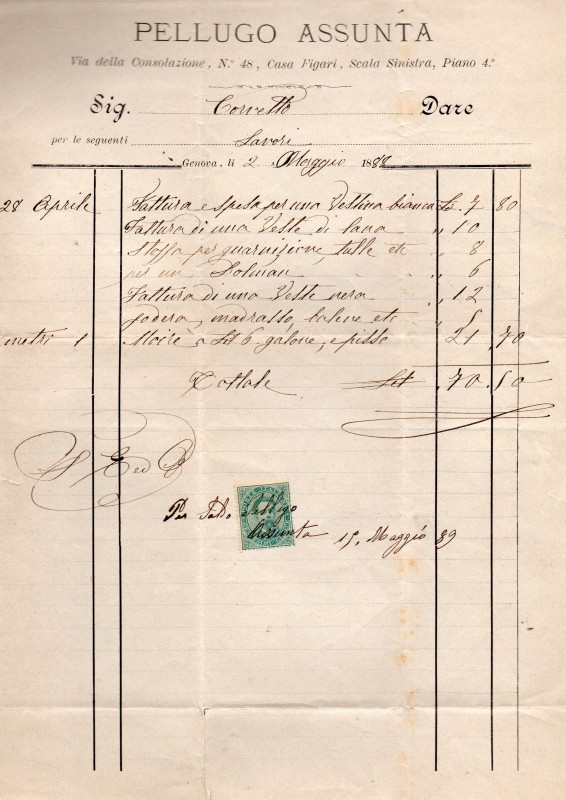 PELLUGO ASSUNTA
Via della Consolazione, N.° 48, Casa Figari, Scala Sinistra, Piano 4.°
Sig. Corvetto Dare
per le seguenti Lavori
Genova, li 2 Maggio 1888
28 Aprile Fattura e spesa per una Vestina bianca Lit. 7 80
Fattura di una Veste di lana " 10
Stoffa per guarnizione tulle etc " 8
per un Dolman " 6
Fattura di una Veste nera " 12
fodera, madrasso, balene etc " 5
metri 1 Moirè a Lit 6. galone, e pisso 21 . 70
Tottale Lit . 70 . 50
Per Saldo Pellugo
Assunta 15, Maggio 89